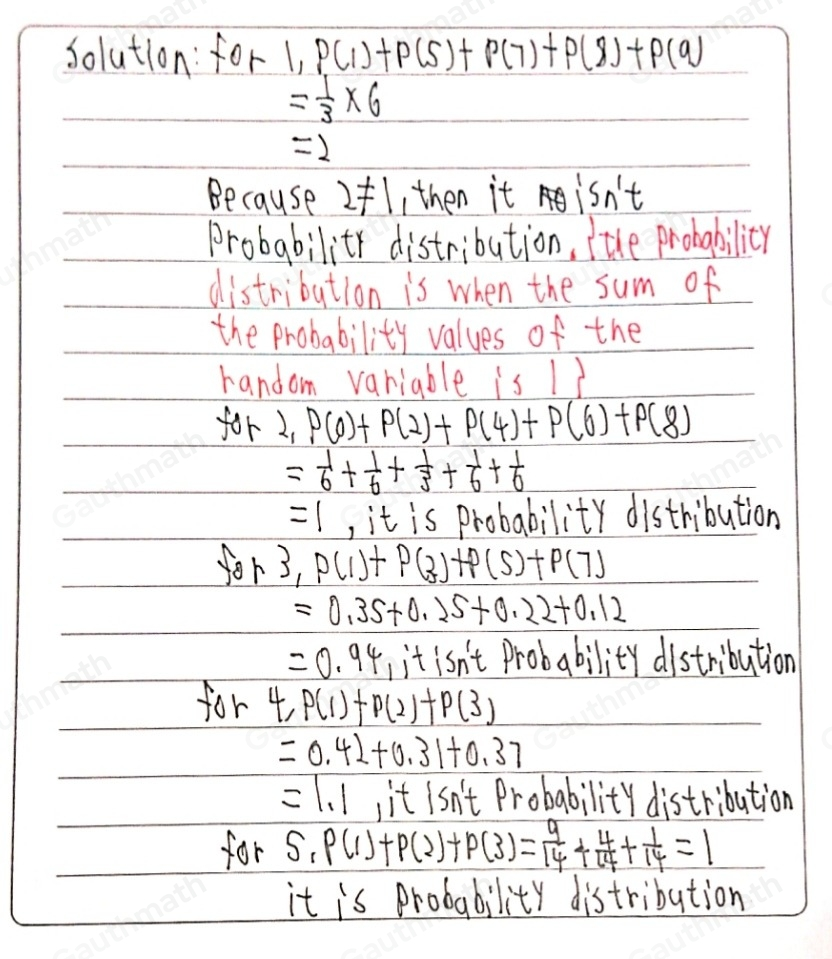 Solution: for 1, P(1)+P(5)+P(7)+P(8)+P(9)
= 1/3 × 6
= 2
Because 2≠1, then it isn't
Probability distribution. {the probability
distribution is when the sum of
the probability values of the
random variable is 1}
for 2, P(0)+P(2)+P(4)+P(6)+P(8)
= 1/6 + 1/6 + 1/3 + 1/6 + 1/6
= 1, it is probability distribution
for 3, P(1)+P(3)+P(5)+P(7)
= 0.35+0.25+0.22+0.12
= 0.94, it isn't Probability distribution
for 4, P(1)+P(2)+P(3)
= 0.42+0.31+0.37
= 1.1, it isn't Probability distribution
for 5, P(1)+P(2)+P(3) = 9/14 + 4/14 + 1/14 = 1
it is Probability distribution